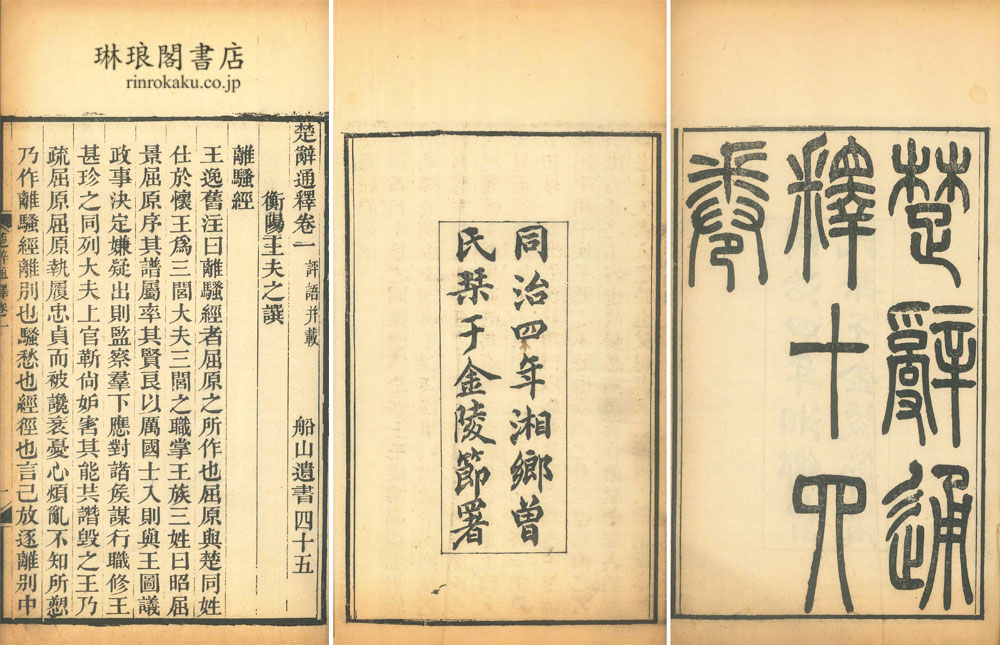 琳琅閣書店
rinrokaku.co.jp
楚辭通
釋十四
卷
同治四年湘鄉曾
氏栞于金陵節署
楚辭通釋卷一 評語并載 船山遺書四十五
衡陽王夫之譔
離騷經
王逸舊注曰離騷經者屈原之所作也屈原與楚同姓
仕於懷王爲三閭大夫三閭之職掌王族三姓曰昭屈
景屈原序其譜屬率其賢良以厲國士入則與王圖議
政事決定嫌疑出則監察羣下應對諸矦謀行職修王
甚珍之同列大夫上官靳尚妒害其能共譖毀之王乃
疏屈原屈原執履忠貞而被讒衺憂心煩亂不知所愬
乃作離騷經離別也騷愁也經徑也言己放逐離別中